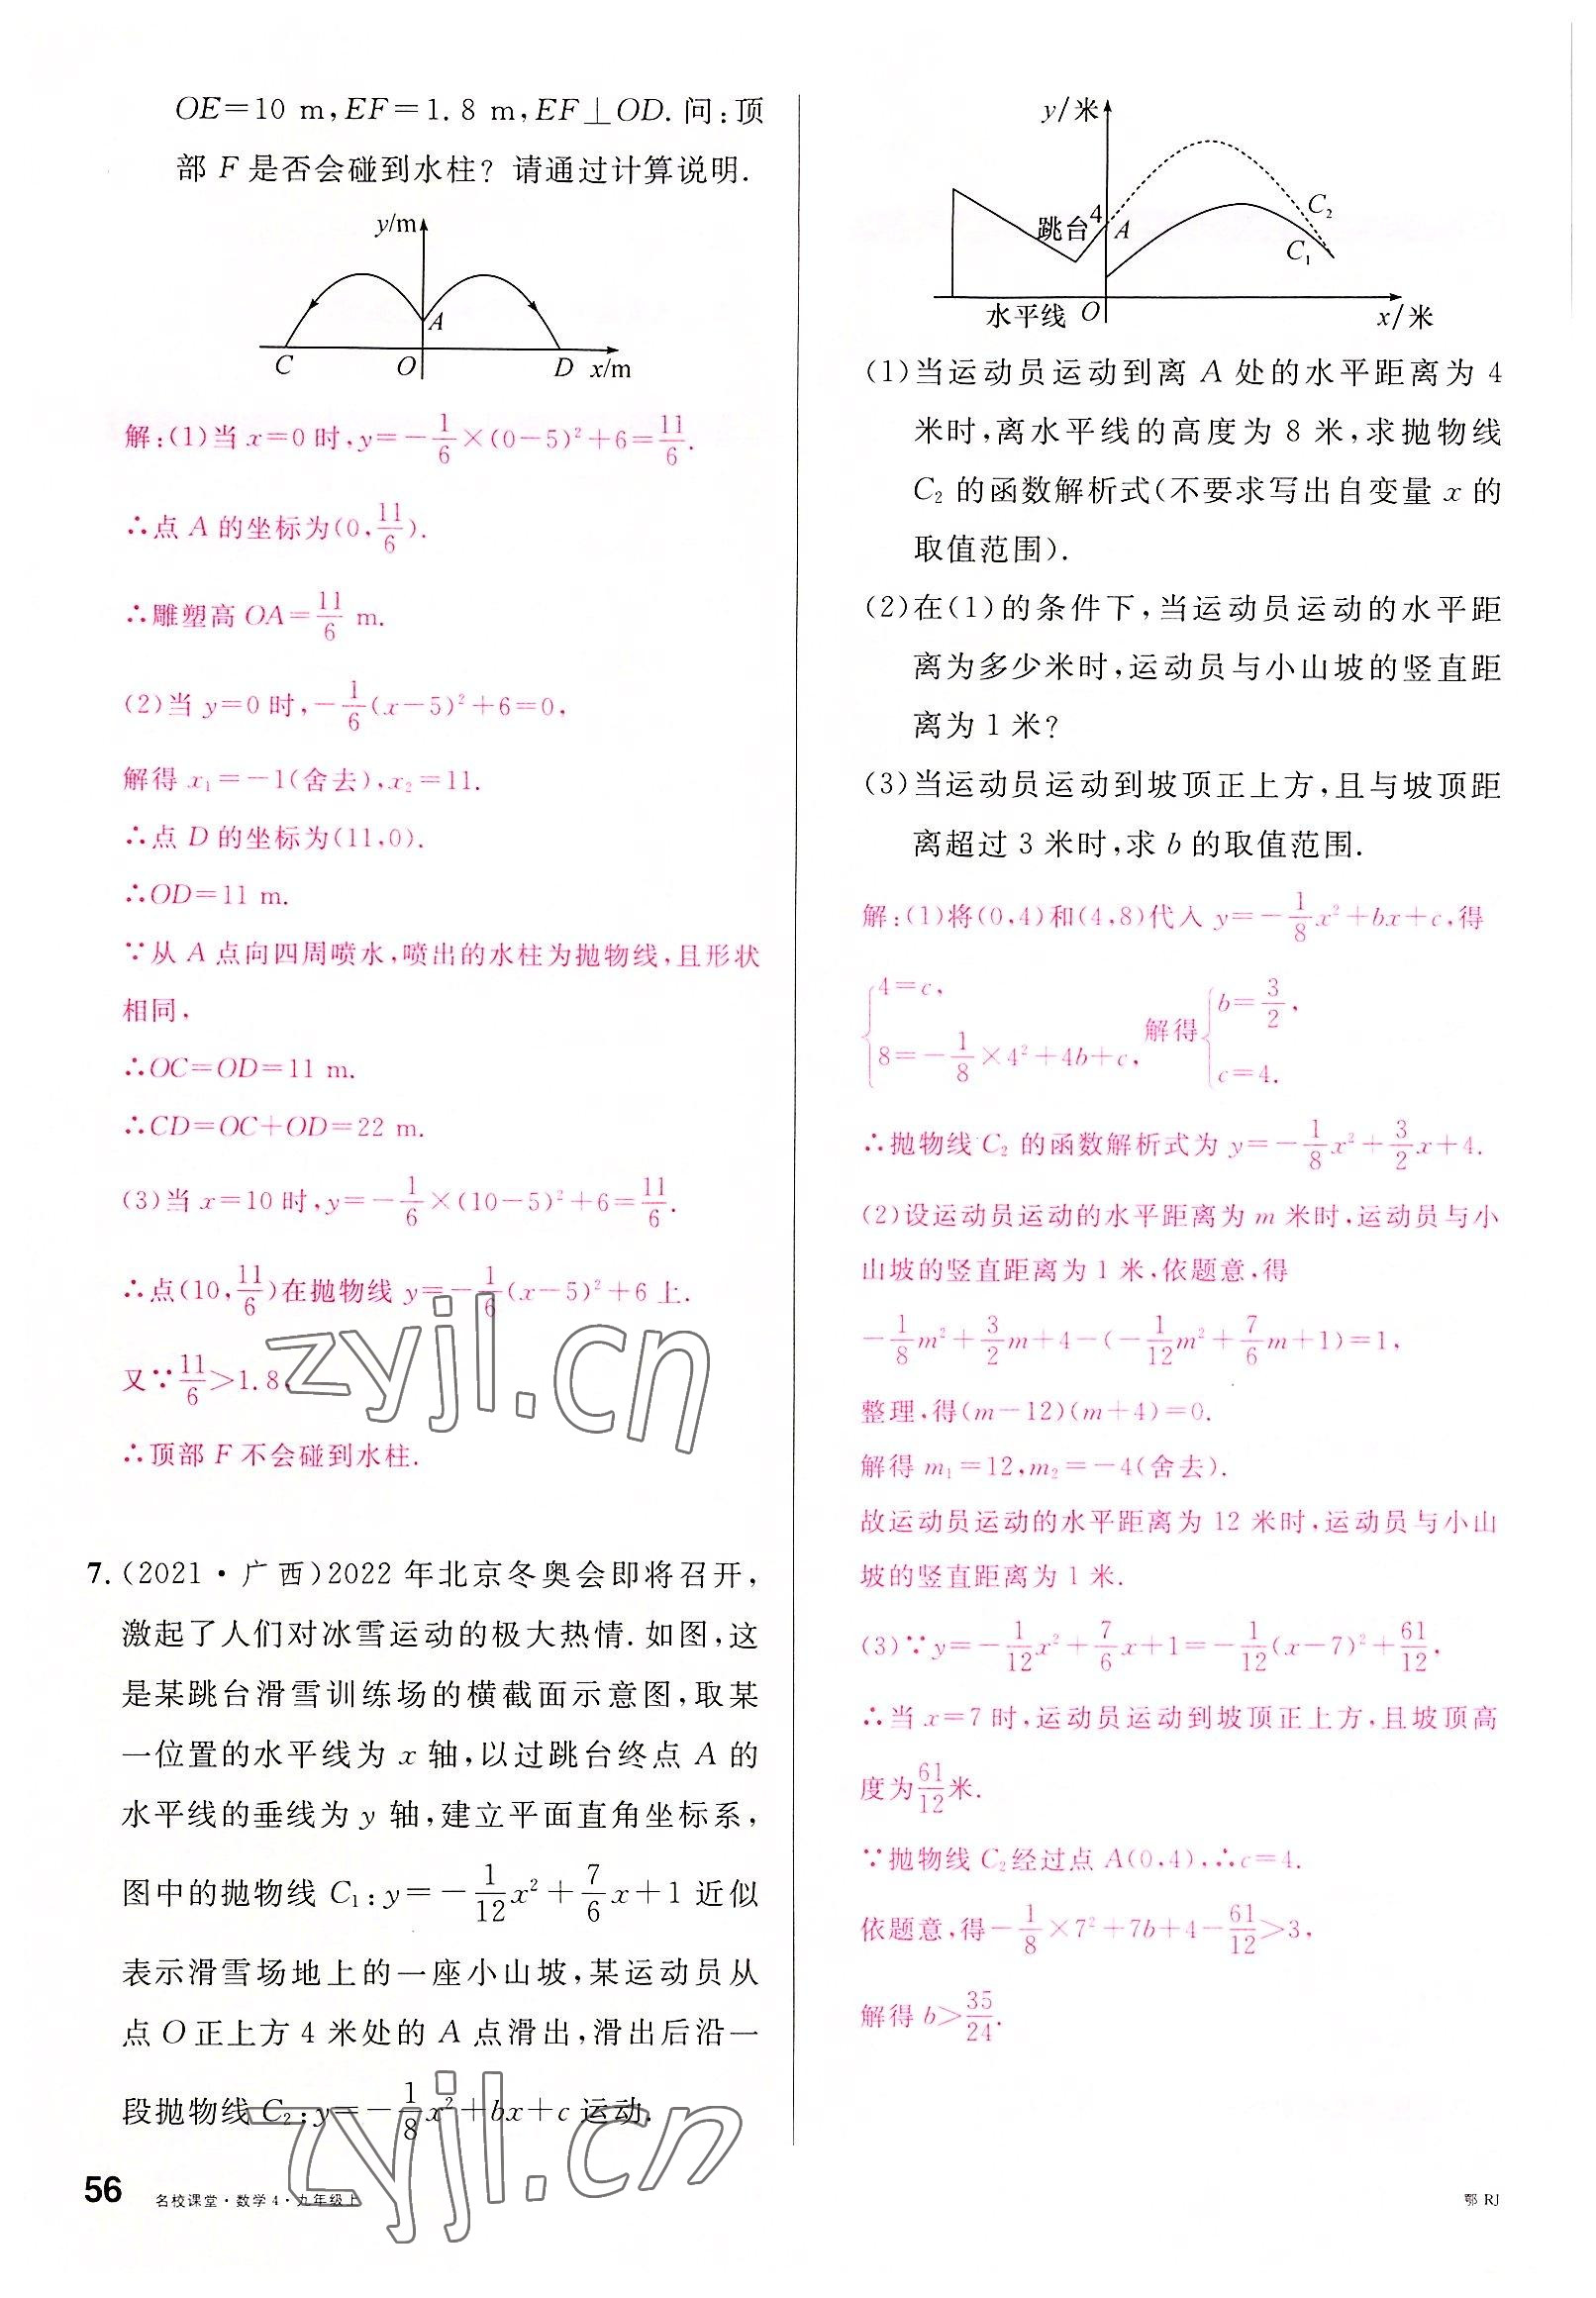 OE=10 m,EF=1.8 m,EF⊥OD.问:顶
部 F 是否会碰到水柱?请通过计算说明.
y/m
A
C
O
D
x/m
解:(1)当 x=0 时,y=-1/6×(0-5)²+6=11/6.
∴点 A 的坐标为(0,11/6).
∴雕塑高 OA=11/6 m.
(2)当 y=0 时,-1/6(x-5)²+6=0,
解得 x₁=-1(舍去),x₂=11.
∴点 D 的坐标为(11,0).
∴OD=11 m.
∵从 A 点向四周喷水,喷出的水柱为抛物线,且形状
相同,
∴OC=OD=11 m.
∴CD=OC+OD=22 m.
(3)当 x=10 时,y=-1/6×(10-5)²+6=11/6.
∴点(10,11/6)在抛物线 y=-1/6(x-5)²+6 上.
又∵11/6>1.8,
∴顶部 F 不会碰到水柱.
zyjl.cn
7.(2021·广西)2022 年北京冬奥会即将召开,
激起了人们对冰雪运动的极大热情.如图,这
是某跳台滑雪训练场的横截面示意图,取某
一位置的水平线为 x 轴,以过跳台终点 A 的
水平线的垂线为 y 轴,建立平面直角坐标系,
图中的抛物线 C₁:y=-1/12x²+7/6x+1 近似
表示滑雪场地上的一座小山坡,某运动员从
点 O 正上方 4 米处的 A 点滑出,滑出后沿一
段抛物线 C₂:y=-1/8x²+bx+c 运动.
zyjl.cn
y/米
跳台
4
A
C₂
C₁
水平线
O
x/米
(1)当运动员运动到离 A 处的水平距离为 4
米时,离水平线的高度为 8 米,求抛物线
C₂ 的函数解析式(不要求写出自变量 x 的
取值范围).
(2)在(1)的条件下,当运动员运动的水平距
离为多少米时,运动员与小山坡的竖直距
离为 1 米?
(3)当运动员运动到坡顶正上方,且与坡顶距
离超过 3 米时,求 b 的取值范围.
解:(1)将(0,4)和(4,8)代入 y=-1/8x²+bx+c,得
{4=c, 8=-1/8×4²+4b+c, 解得 {b=3/2, c=4.
∴抛物线 C₂ 的函数解析式为 y=-1/8x²+3/2x+4.
(2)设运动员运动的水平距离为 m 米时,运动员与小
山坡的竖直距离为 1 米,依题意,得
-1/8m²+3/2m+4-(-1/12m²+7/6m+1)=1,
整理,得(m-12)(m+4)=0.
解得 m₁=12,m₂=-4(舍去).
故运动员运动的水平距离为 12 米时,运动员与小山
坡的竖直距离为 1 米.
(3)∵y=-1/12x²+7/6x+1=-1/12(x-7)²+61/12,
∴当 x=7 时,运动员运动到坡顶正上方,且坡顶高
度为61/12米.
∵抛物线 C₂经过点 A(0,4),∴c=4.
依题意,得-1/8×7²+7b+4-61/12>3,
解得 b>35/24.
56 名校课堂·数学4·九年级上
鄂 RJ